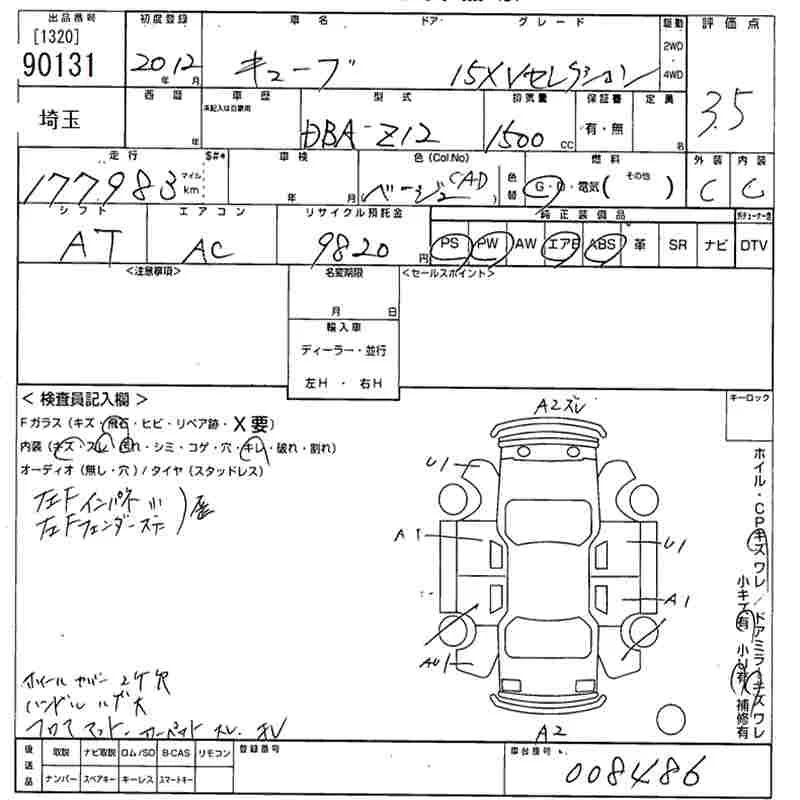 出品番号 初度登録 車名 ドア グレード 駆動 評価点
[1320]
90131 2012 年 月 キューブ 15X Vセレクション 2WD・4WD 3.5
埼玉 西暦 年 車歴 未記入は自家用 型式 DBA-Z12 排気量 1500 cc 保証書 有・無 定員 名
走行 $#* 車検 色(Col.No) 色替 燃料 外装 内装
177983 マイル km 年 月 ベージュ CAD G・D・電気(その他) C C
シフト エアコン リサイクル預託金 純正装備品
AT AC 9820 円 PS PW AW エアB ABS 革 SR ナビ DTV
<注意事項> 名変期限 <セールスポイント>
月 日
輸入車
ディーラー・並行
左H・右H
<検査員記入欄> キーロック
Fガラス(キズ・飛石・ヒビ・リペア跡・X要)
内装(キズ・スレ・汚れ・シミ・コゲ・穴・キレ・破れ・割れ)
オーディオ(無し・穴)/タイヤ(スタッドレス)
左Fインパネ小
左Fフェンダーステ
A2ズレ
U1
A1 U1
A1
AU1
A2
ホイール・CPキズワレ/ドアミラーキズワレ
小キズ有 小U有 補修有
ホイールカバー2ケ欠
ハンドルハゲ大
フロアマット・カーペットスレ・キレ
後送品 取説 ナビ取説 ロム/SD B-CAS リモコン 登録番号 車台番号
ナンバー スペアキー キーレス スマートキー 008486